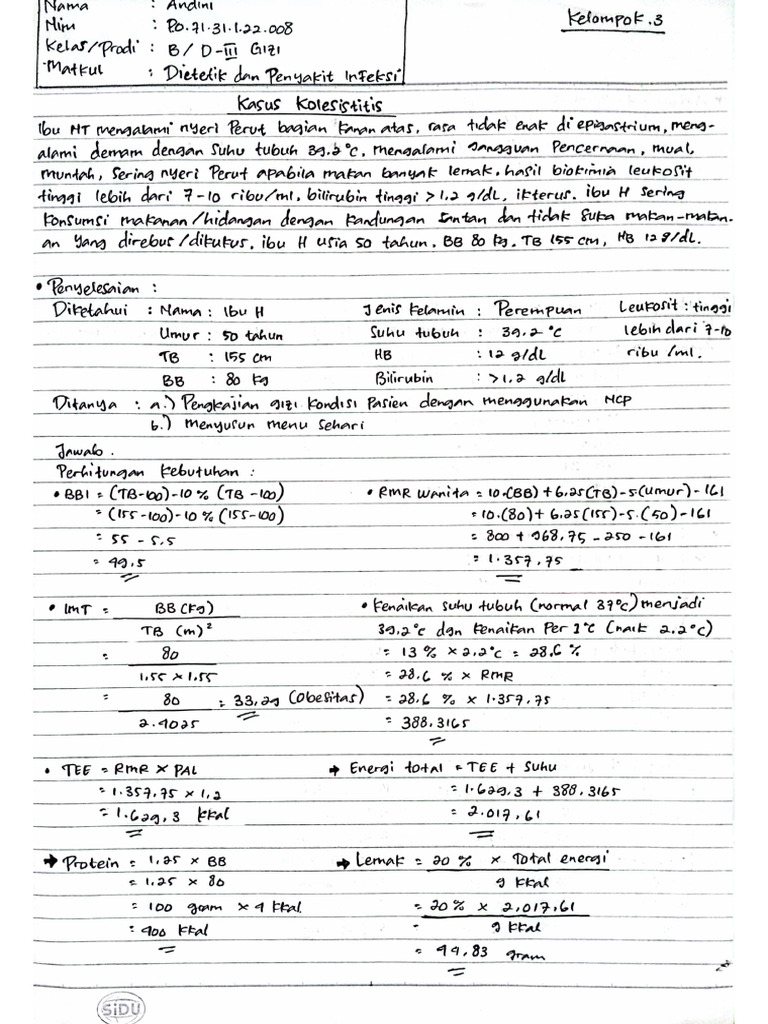 Nama : Andini
Kelompok.3
Nim : PO.71.31.1.22.008
Kelas/Prodi : B / D-III GIZI
Matkul : Dietetik dan Penyakit Infeksi
Kasus Kolesistitis
Ibu NT mengalami nyeri Perut bagian kanan atas, rasa tidak enak di epigastrium, meng-
alami demam dengan suhu tubuh 39.2°C, mengalami gangguan Pencernaan, mual,
muntah, sering nyeri Perut apabila makan banyak lemak. hasil biokimia leukosit
tinggi lebih dari 7-10 ribu/ml, bilirubin tinggi >1.2 g/dL, ikterus. ibu H sering
konsumsi makanan/hidangan dengan kandungan Santan dan tidak Suka makan-makan.
an yang direbus/dikukus. ibu H usia 50 tahun. BB 80 kg. TB 155 cm, HB 12 g/dL.
• Penyelesaian :
Diketahui : Nama : Ibu H Jenis Kelamin : Perempuan Leukosit : tinggi
Umur : 50 tahun Suhu tubuh : 39.2 °C lebih dari 7-10
TB : 155 cm HB : 12 g/dL ribu /ml.
BB : 80 kg Bilirubin : >1.2 g/dL
Ditanya : a.) Pengkajian gizi kondisi Pasien dengan menggunakan NCP
b.) menyusun menu sehari
Jawab.
Perhitungan Kebutuhan :
• BBI = (TB-100)-10% (TB-100)
= (155-100)-10% (155-100)
= 55 - 5.5
= 49.5
• RMR Wanita = 10.(BB)+6.25(TB)-5(umur)-161
= 10.(80)+6.25(155)-5.(50)-161
= 800 + 968,75 - 250 - 161
= 1.357,75
• IMT = BB (kg)
TB (m)²
= 80
1.55 × 1.55
= 80 = 33,29 (Obesitas)
2.4025
• Kenaikan suhu tubuh (normal 37°C) menjadi
39.2°C dgn Kenaikan Per 1°C (naik 2.2°C)
= 13 % × 2,2°C = 28.6 %
= 28.6 % × RMR
= 28.6 % × 1.357,75
= 388.3165
• TEE = RMR × PAL
= 1.357,75 × 1,2
= 1.629,3 kkal
→ Energi total = TEE + Suhu
= 1.629,3 + 388.3165
= 2.017,61
→ Protein = 1,25 × BB
= 1,25 × 80
= 100 gram × 4 kkal
= 400 kkal
→ Lemak = 20 % × Total energi
9 kkal
= 20% × 2.017,61
9 kkal
= 44,83 gram
SiDU